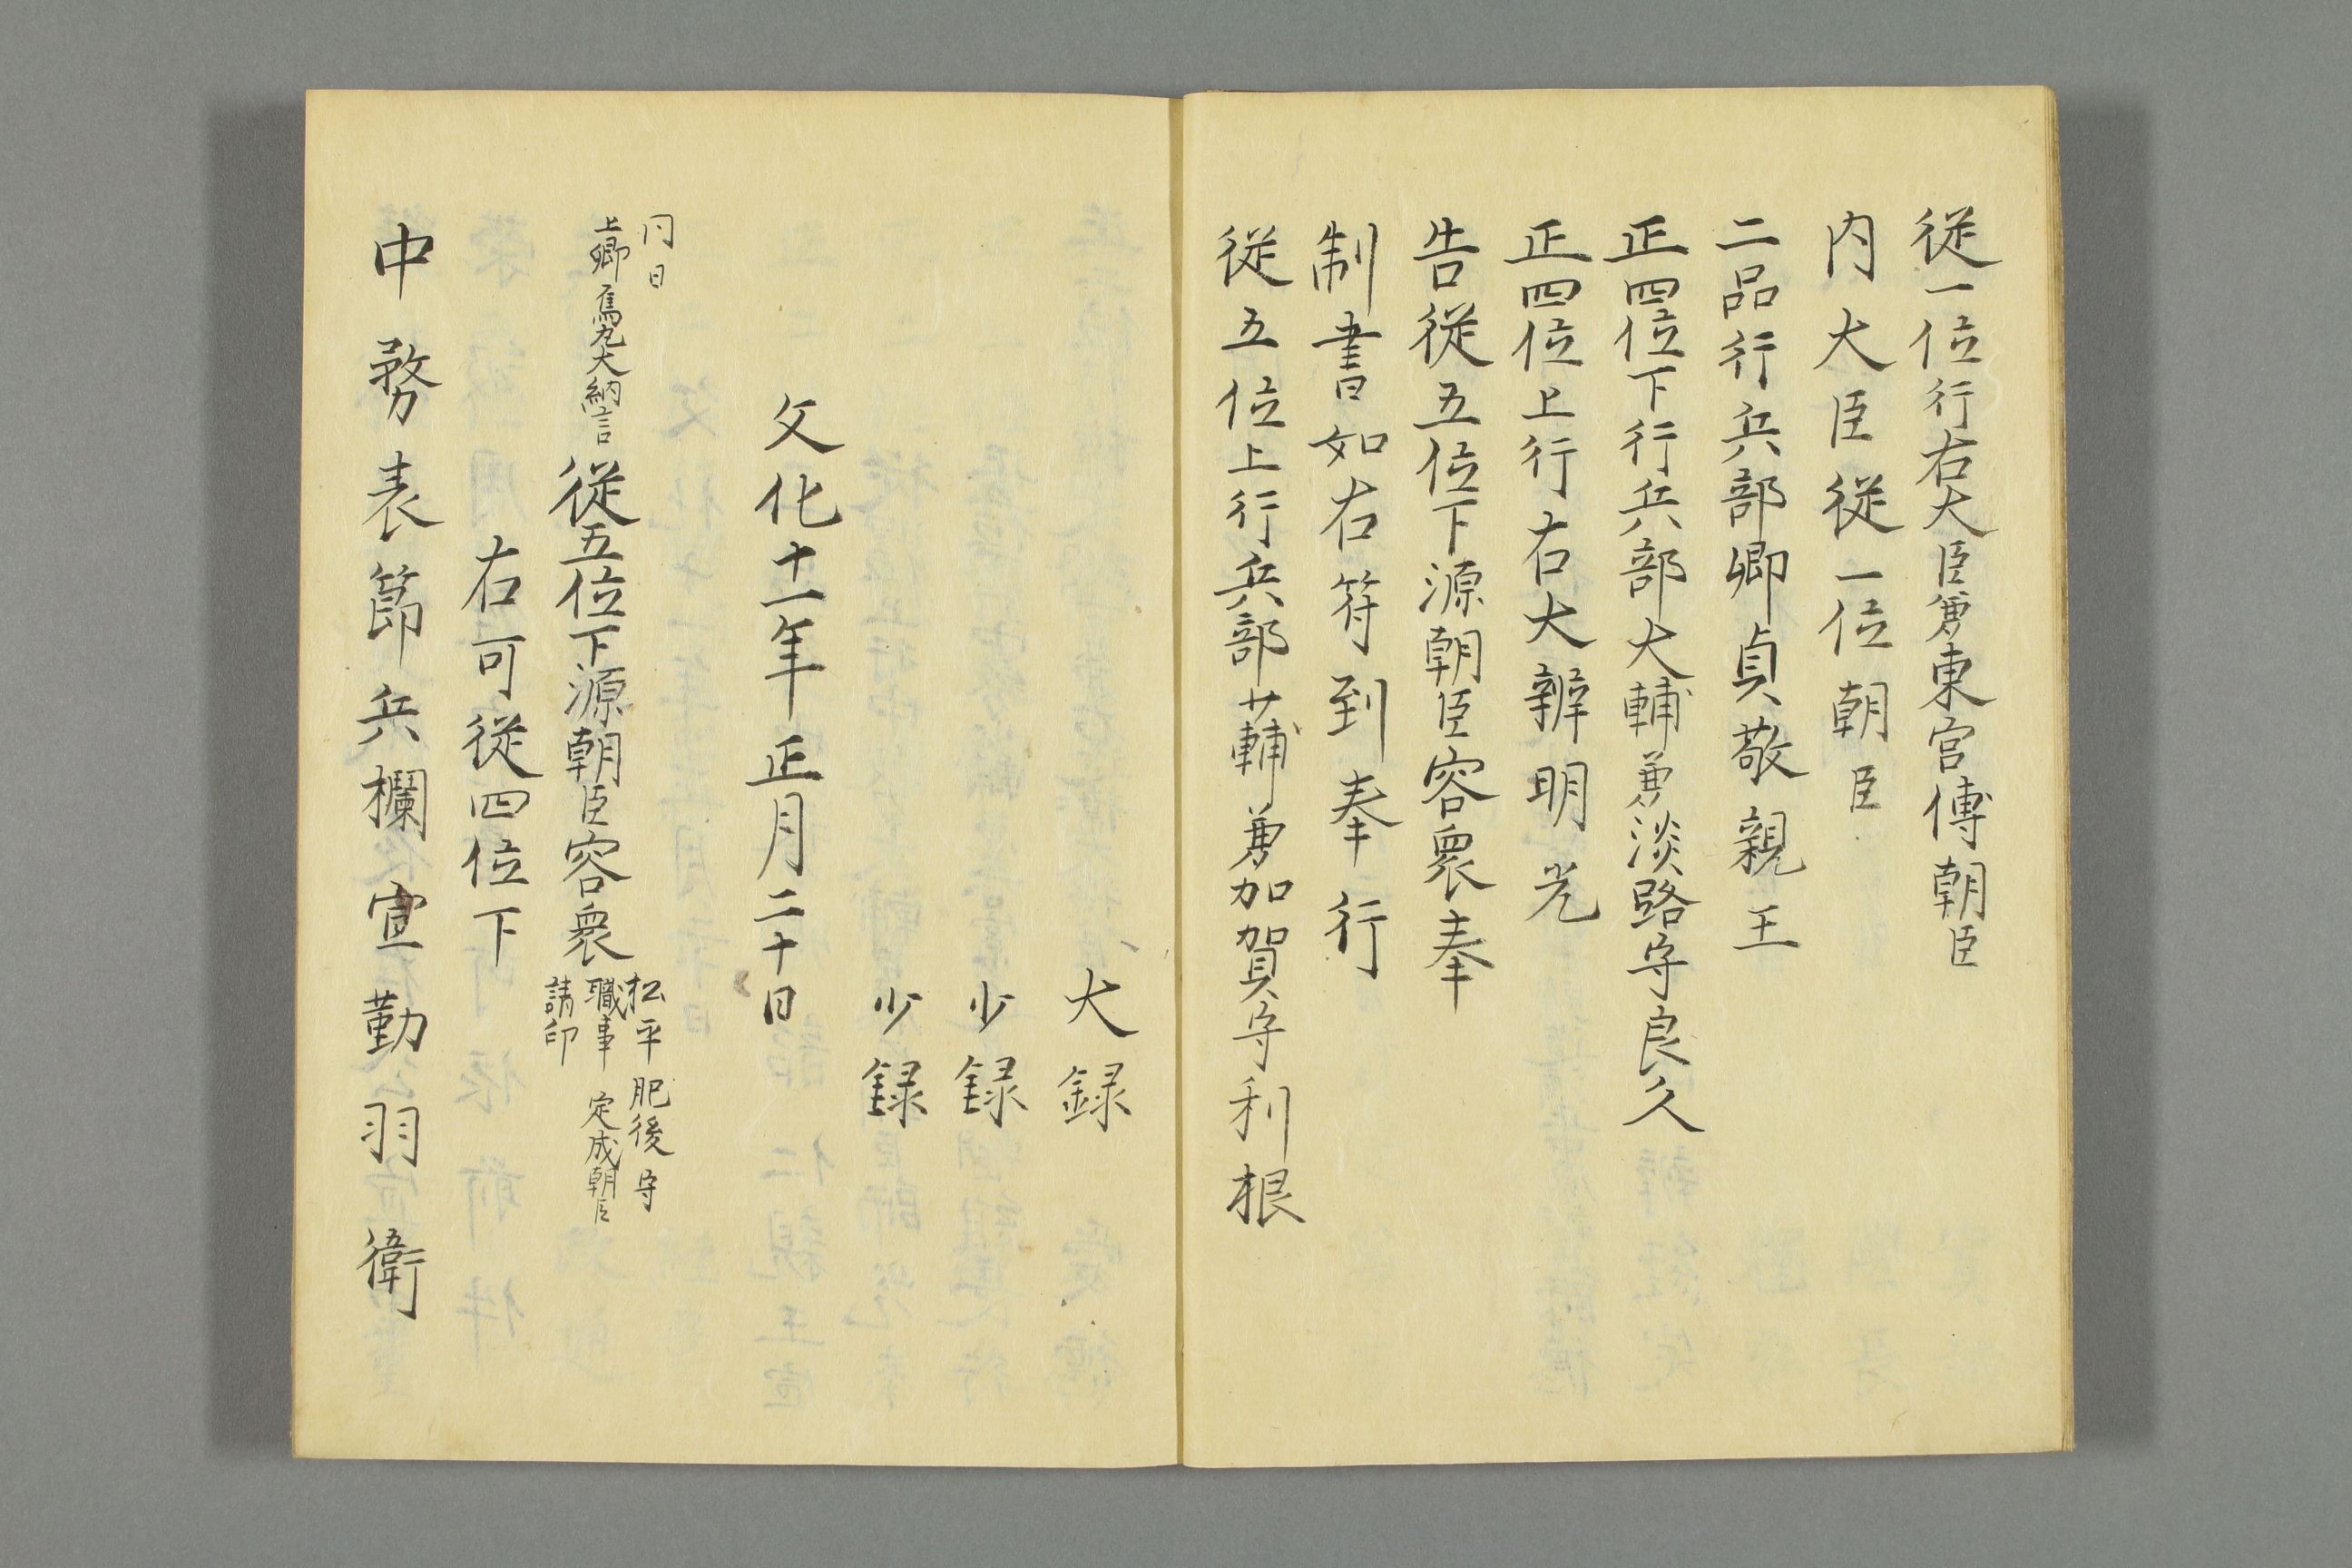 従一位行右大臣兼東宮傅朝臣
内大臣従一位朝臣
二品行兵部卿貞敬親王
正四位下行兵部大輔兼淡路守良久
正四位上行右大辨明光
告従五位下源朝臣容衆奉
制書如右符到奉行
従五位上行兵部少輔兼加賀守利根
大録
少録
少録
文化十一年正月二十日
同日
上卿烏丸大納言
従五位下源朝臣容衆
松平肥後守
職事 定成朝臣
請印
右可従四位下
中務表節兵欄宣勤羽衛